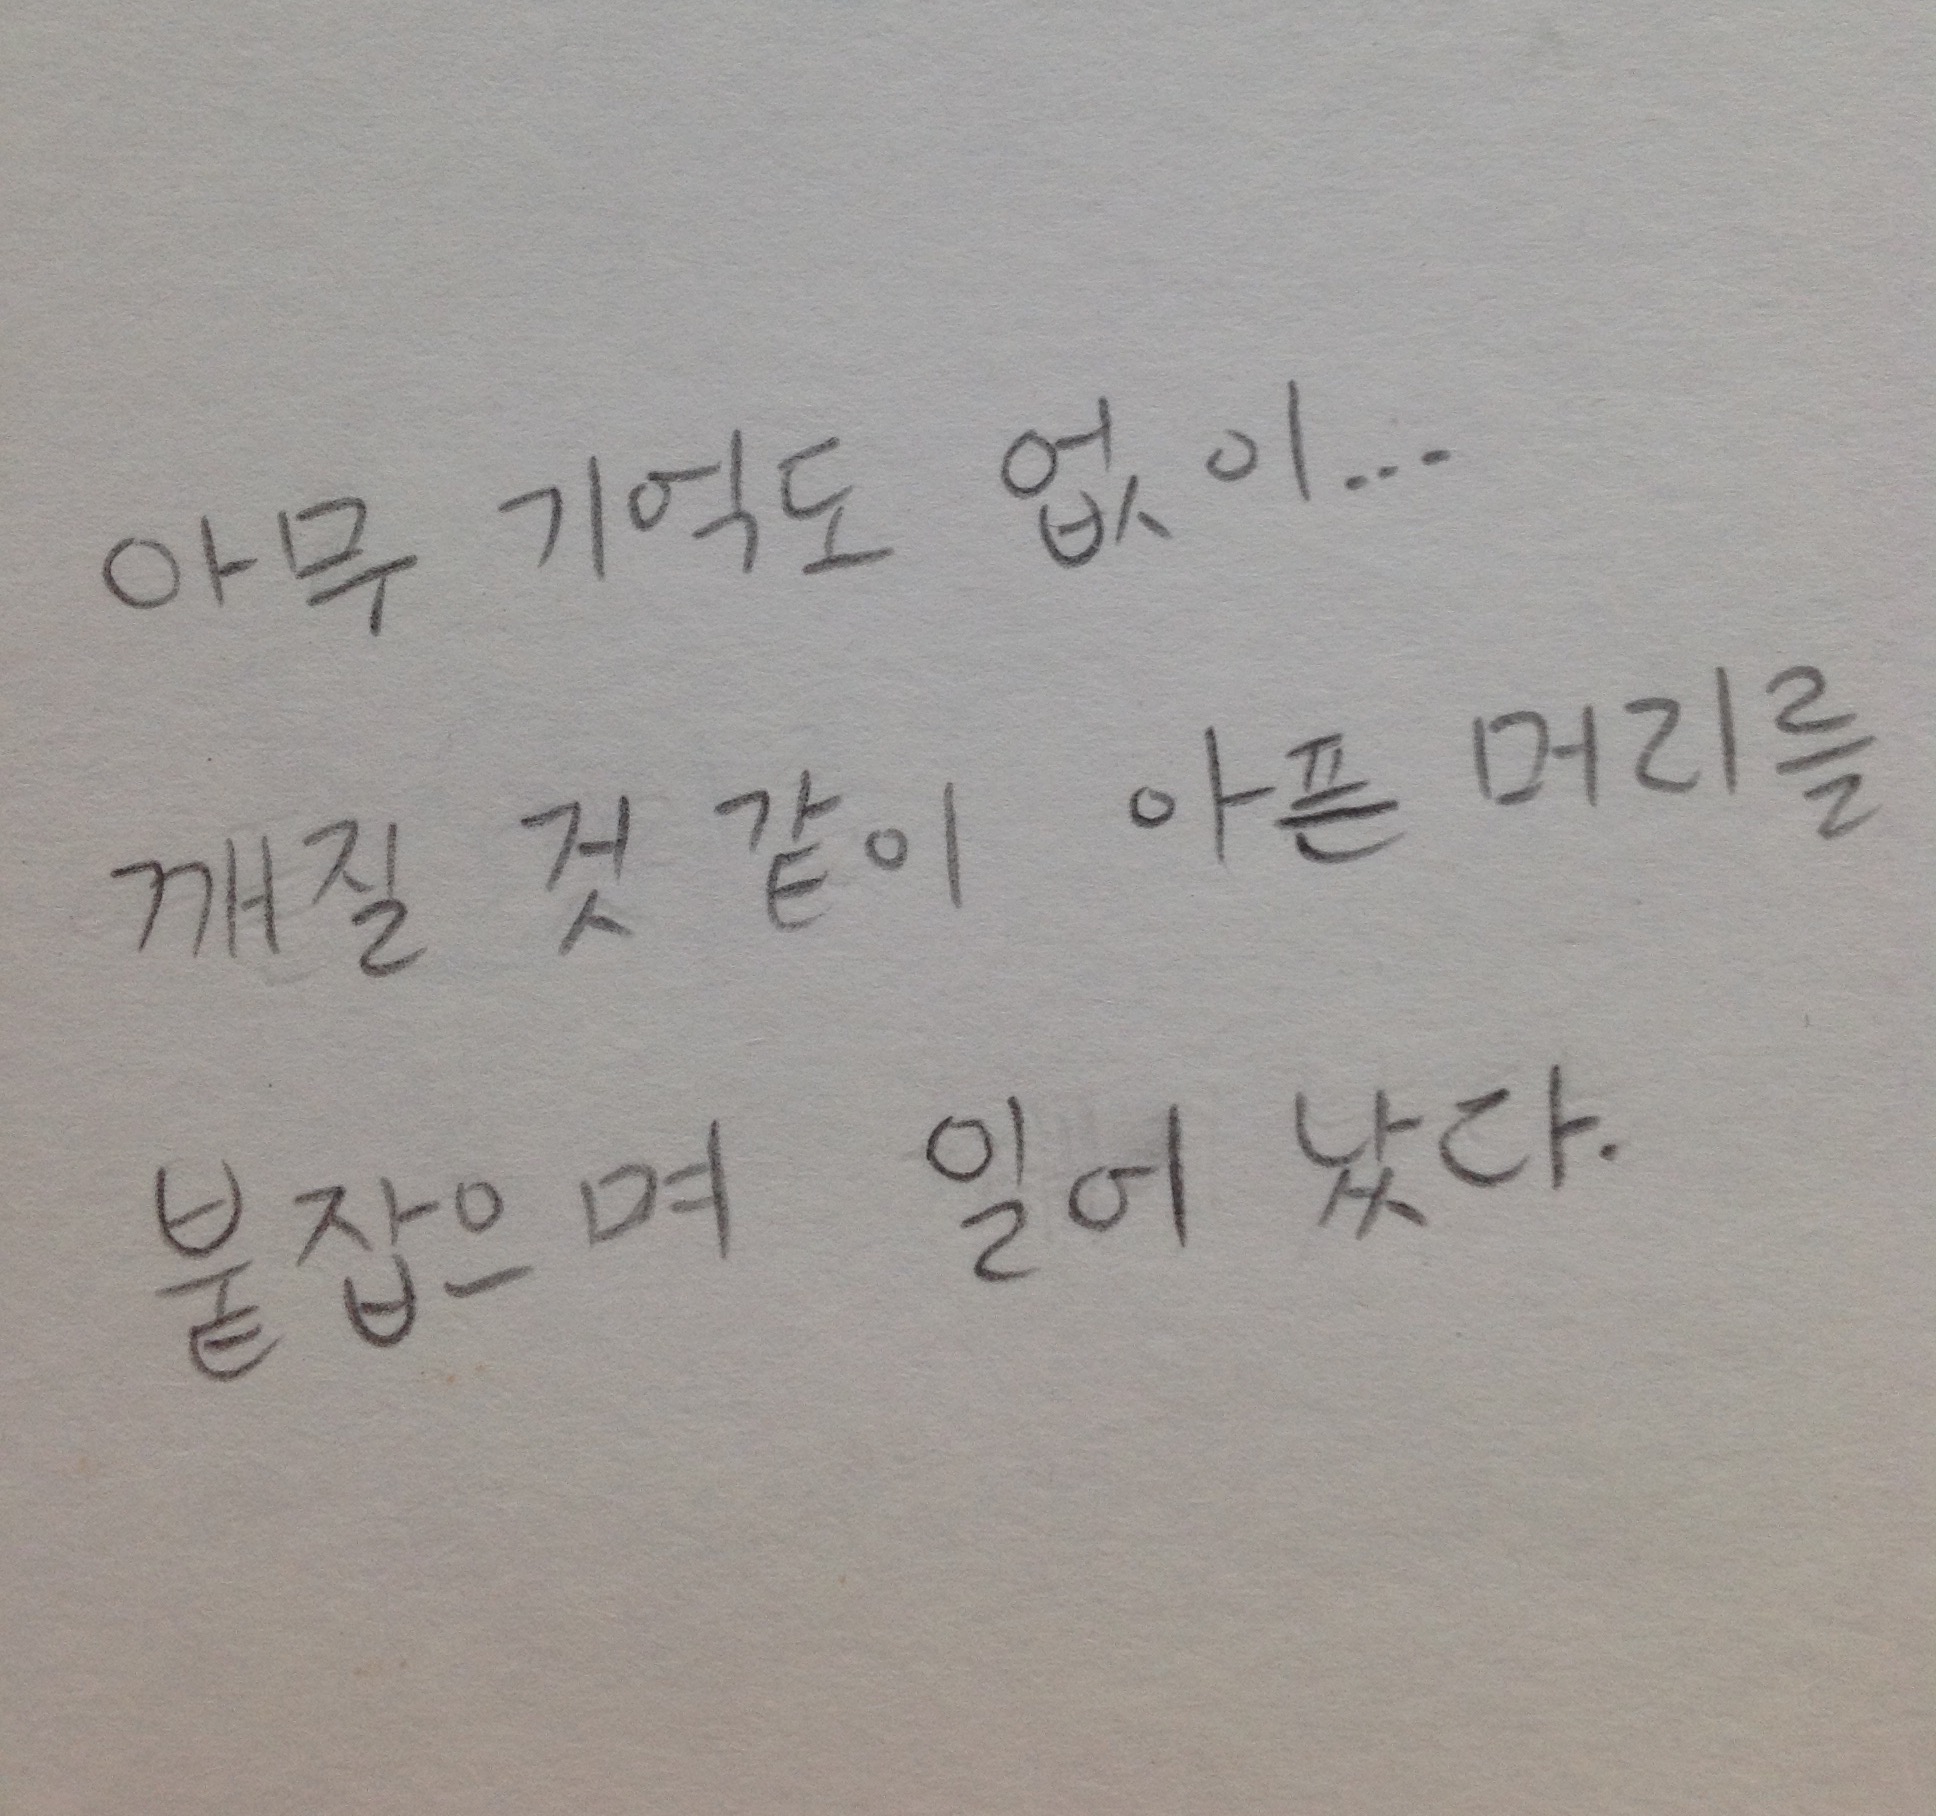 아무 기억도 없이...
깨질 것 같이 아픈 머리를
붙잡으며 일어났다.